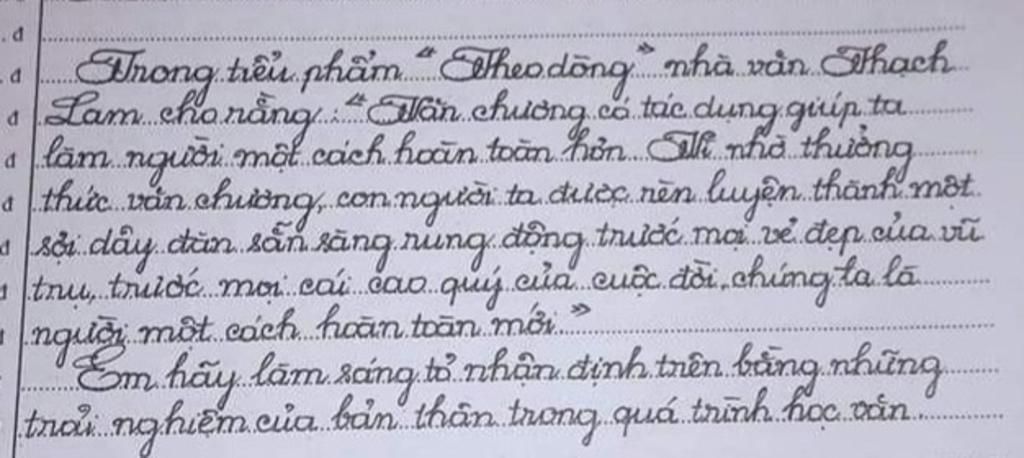 Trong tiểu phẩm "Theo dòng" nhà văn Thạch
Lam cho rằng: "Văn chương có tác dụng giúp ta
làm người một cách hoàn toàn hơn. Vì nhờ thưởng
thức văn chương, con người ta được rèn luyện thành một
sợi dây đàn sẵn sàng rung động trước mọi vẻ đẹp của vũ
trụ, trước mọi cái cao quý của cuộc đời, chúng ta là
người một cách hoàn toàn mới"
Em hãy làm sáng tỏ nhận định trên bằng những
trải nghiệm của bản thân trong quá trình học văn.